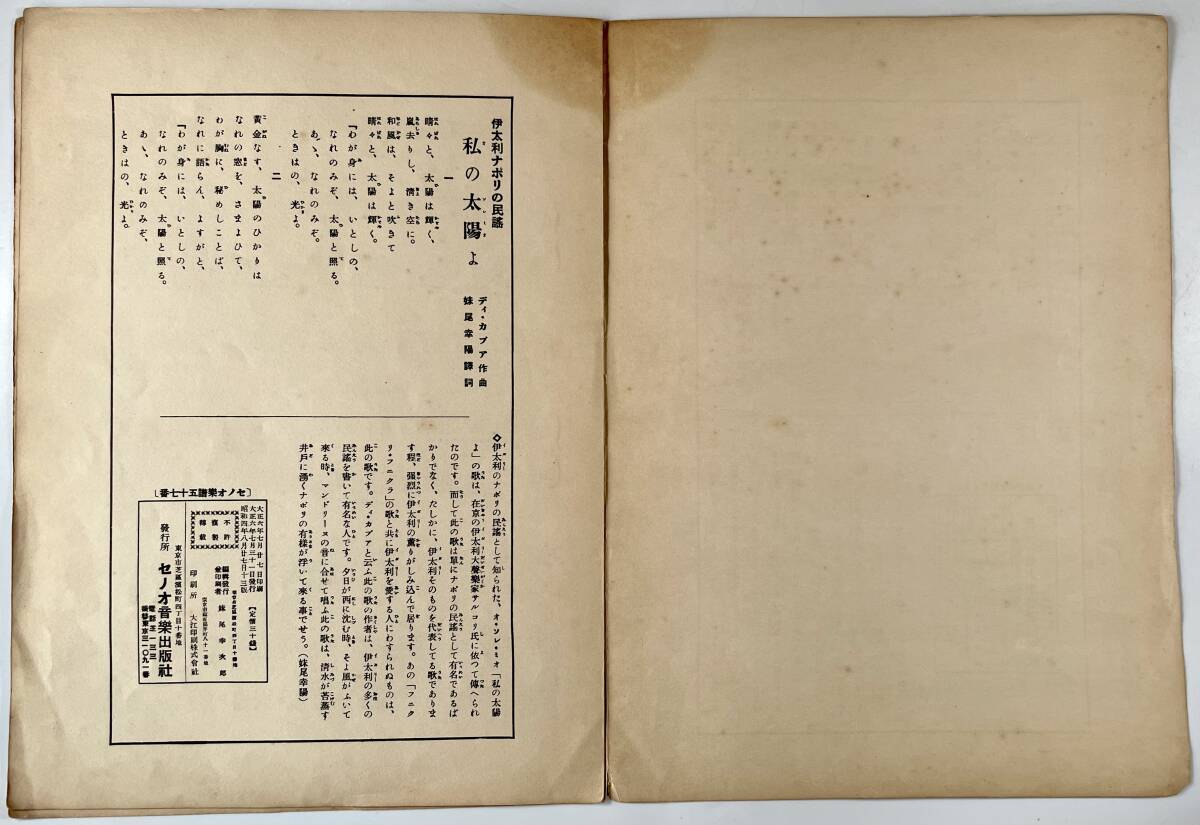 伊太利ナポリの民謠
私の太陽よ
ディ・カプア作曲
妹尾幸陽譯詞
一
晴々と、太陽は輝く、
嵐去りし、淸き空に。
和風は、そよと吹きて
晴々と、太陽は輝く。
「わが身には、いとしの、
なれのみぞ、太陽と照る。
あゝ、なれのみぞ。
ときはの、光よ。
二
黄金なす、太陽のひかりは
なれの窓を、さまよひて、
わが胸に、秘めしことば、
なれに語らん、よすがと、
「わが身には、いとしの、
なれのみぞ、太陽と照る。
あゝ、なれのみぞ、
ときはの、光よ。
◇伊太利のナポリの民謠として知られた、オ・ソレ・ミオ「私の太陽
よ」の歌は、在京の伊太利大聲樂家サルコリ氏に依つて傳へられ
たのです。而して此の歌は單にナポリの民謠として有名であるば
かりでなく、たしかに、伊太利そのものを代表してる歌でありま
す程、强烈に伊太利の薫りがしみ込んで居ります。あの「フニク
リ・フニクラ」の歌と共に伊太利を愛する人にわすられぬものは、
此の歌です。ディ・カプアと云ふ此の歌の作者は、伊太利の多くの
民謠を書いて有名な人です。夕日が西に沈む時、そよ風がふいて
來る時、マンドリーヌの音に合せて唱ふ此の歌は、淸水が苔蒸す
井戸に湧くナポリの有樣が浮いて來る事でせう。(妹尾幸陽)
〔セノオ樂譜五十七番〕
大正六年七月廿七日印刷
大正六年七月三十一日發行
昭和四年八月廿七日十三版
【定價三十錢】
不許複製轉載
編輯發行兼印刷者 妹尾幸次郎
印刷所 大江印刷株式會社
東京市芝區濱松町四丁目十番地
發行所 セノオ音樂出版社
電話芝一三三
振替東京三一〇九一番